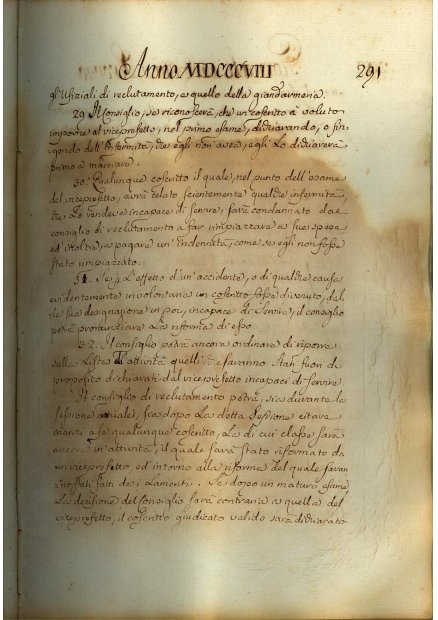 Anno MDCCCVIII 291
gl'Ufiziali di reclutamento, a quello della giandarmeria.
29 Il Consiglio, se riconoscerà, che un coscritto à voluto
imporre al viceprefetto, nel primo esame, dichiarando, o fin,
gendo dell'Infermità, che egli non avea, egli lo dichiarerà
primo a marciare.
30. Qualunque coscritto il quale, nel punto dell'esame
del viceprefetto, avrà celato scientemente qualche infermità,
che lo rendeva incapace di servire, sarà condannato dal
consiglio di reclutamento a far rimpiazzare a sue spese
ed inoltre, a pagare un'indennità, come se egli non fosse
stato rimpiazzato.
31. Se per l'effetto d'un'accidente, o di qualche causa
evidentemente involontaria un coscritto fosse divenuto, dal,
la sua designazione in poi, incapace di servire, il consiglio
potrà pronunziare la riforma di esso
32. Il consiglio potrà ancora ordinare di riporre
sulla Lista di attività quelli, che saranno stati fuori di
proposito dichiarati dal viceprefetto incapaci di servire.
Il consiglio di reclutamento potrà, sia durante la
sessione attuale, sia dopo la detta sessione citare
avanti a se qualunque coscritto, la di cui classe sarà
ancora in attività, il quale sarà stato riformato da
un viceprefetto ed intorno alla riforma del quale saran
no stati fatti dei lamenti. Se dopo un maturo esame
la decisione del consiglio sarà contraria a quella del
viceprefetto, il coscritto giudicato valido sarà dichiarato